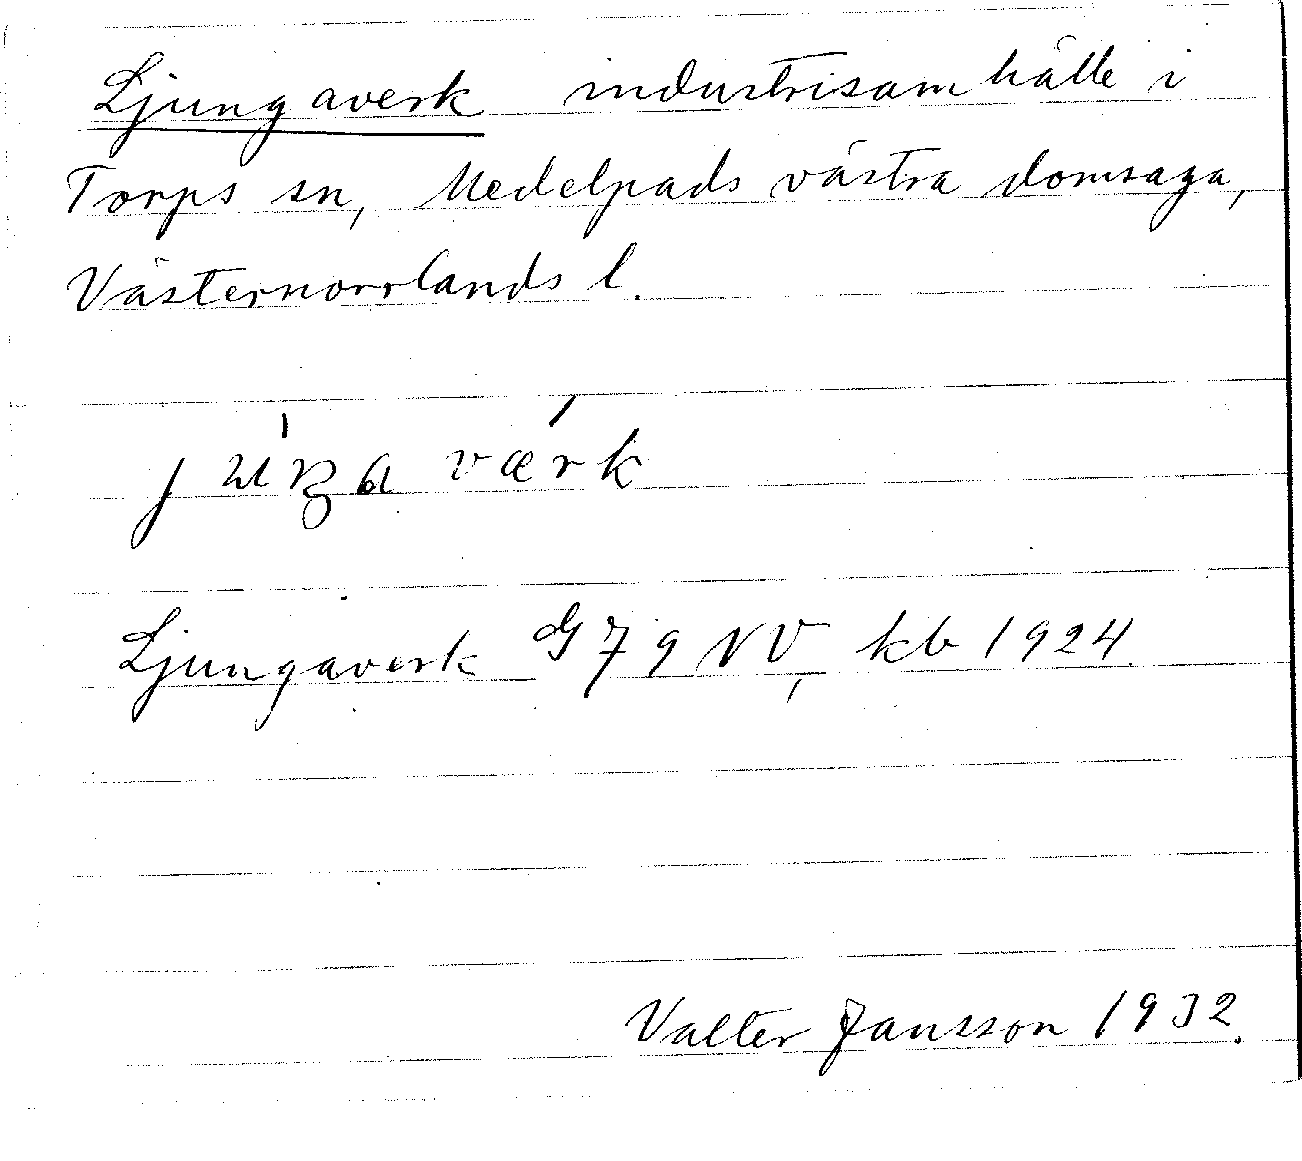 Ljungaverk industrisamhälle i
Torps sn, Medelpads västra domsaga,
Västernorrlands l.
værk
Ljungaverk G79NV, kb 1924
Valter Jansson 1932.